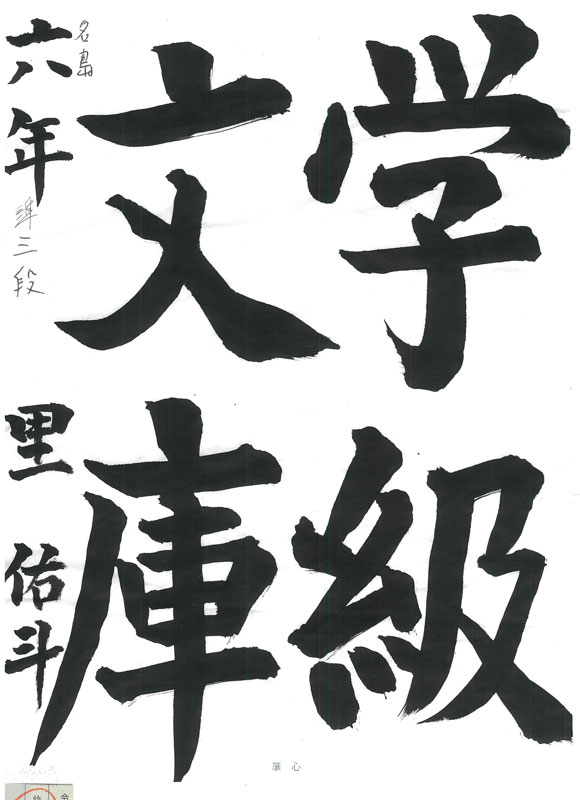 学級
文庫
六年 準三段 里 佑斗
名島
筆心